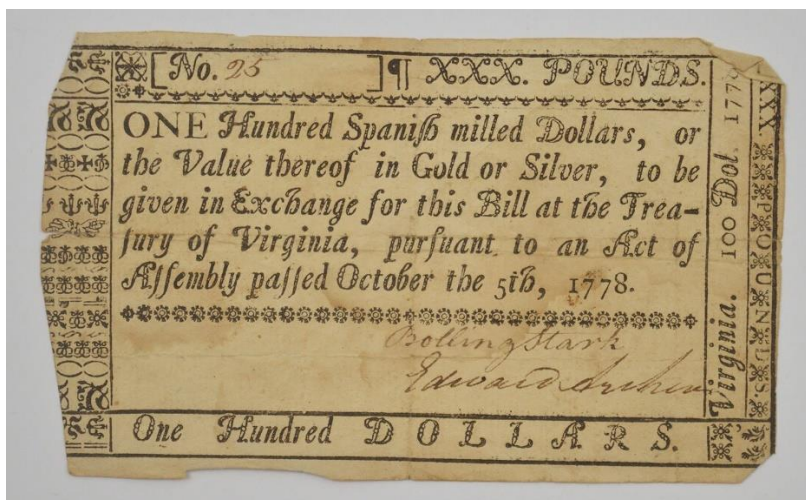 No. 25 ] ¶ XXX. POUNDS.
ONE Hundred Spaniſh milled Dollars, or
the Value thereof in Gold or Silver, to be
given in Exchange for this Bill at the Trea-
ſury of Virginia, purſuant to an Act of
Aſſembly paſſed October the 5th, 1778.
Bolling Stark
Edward Archer
One Hundred DOLLARS.
Virginia. 100 Dol. 1778
XXX POUNDS.